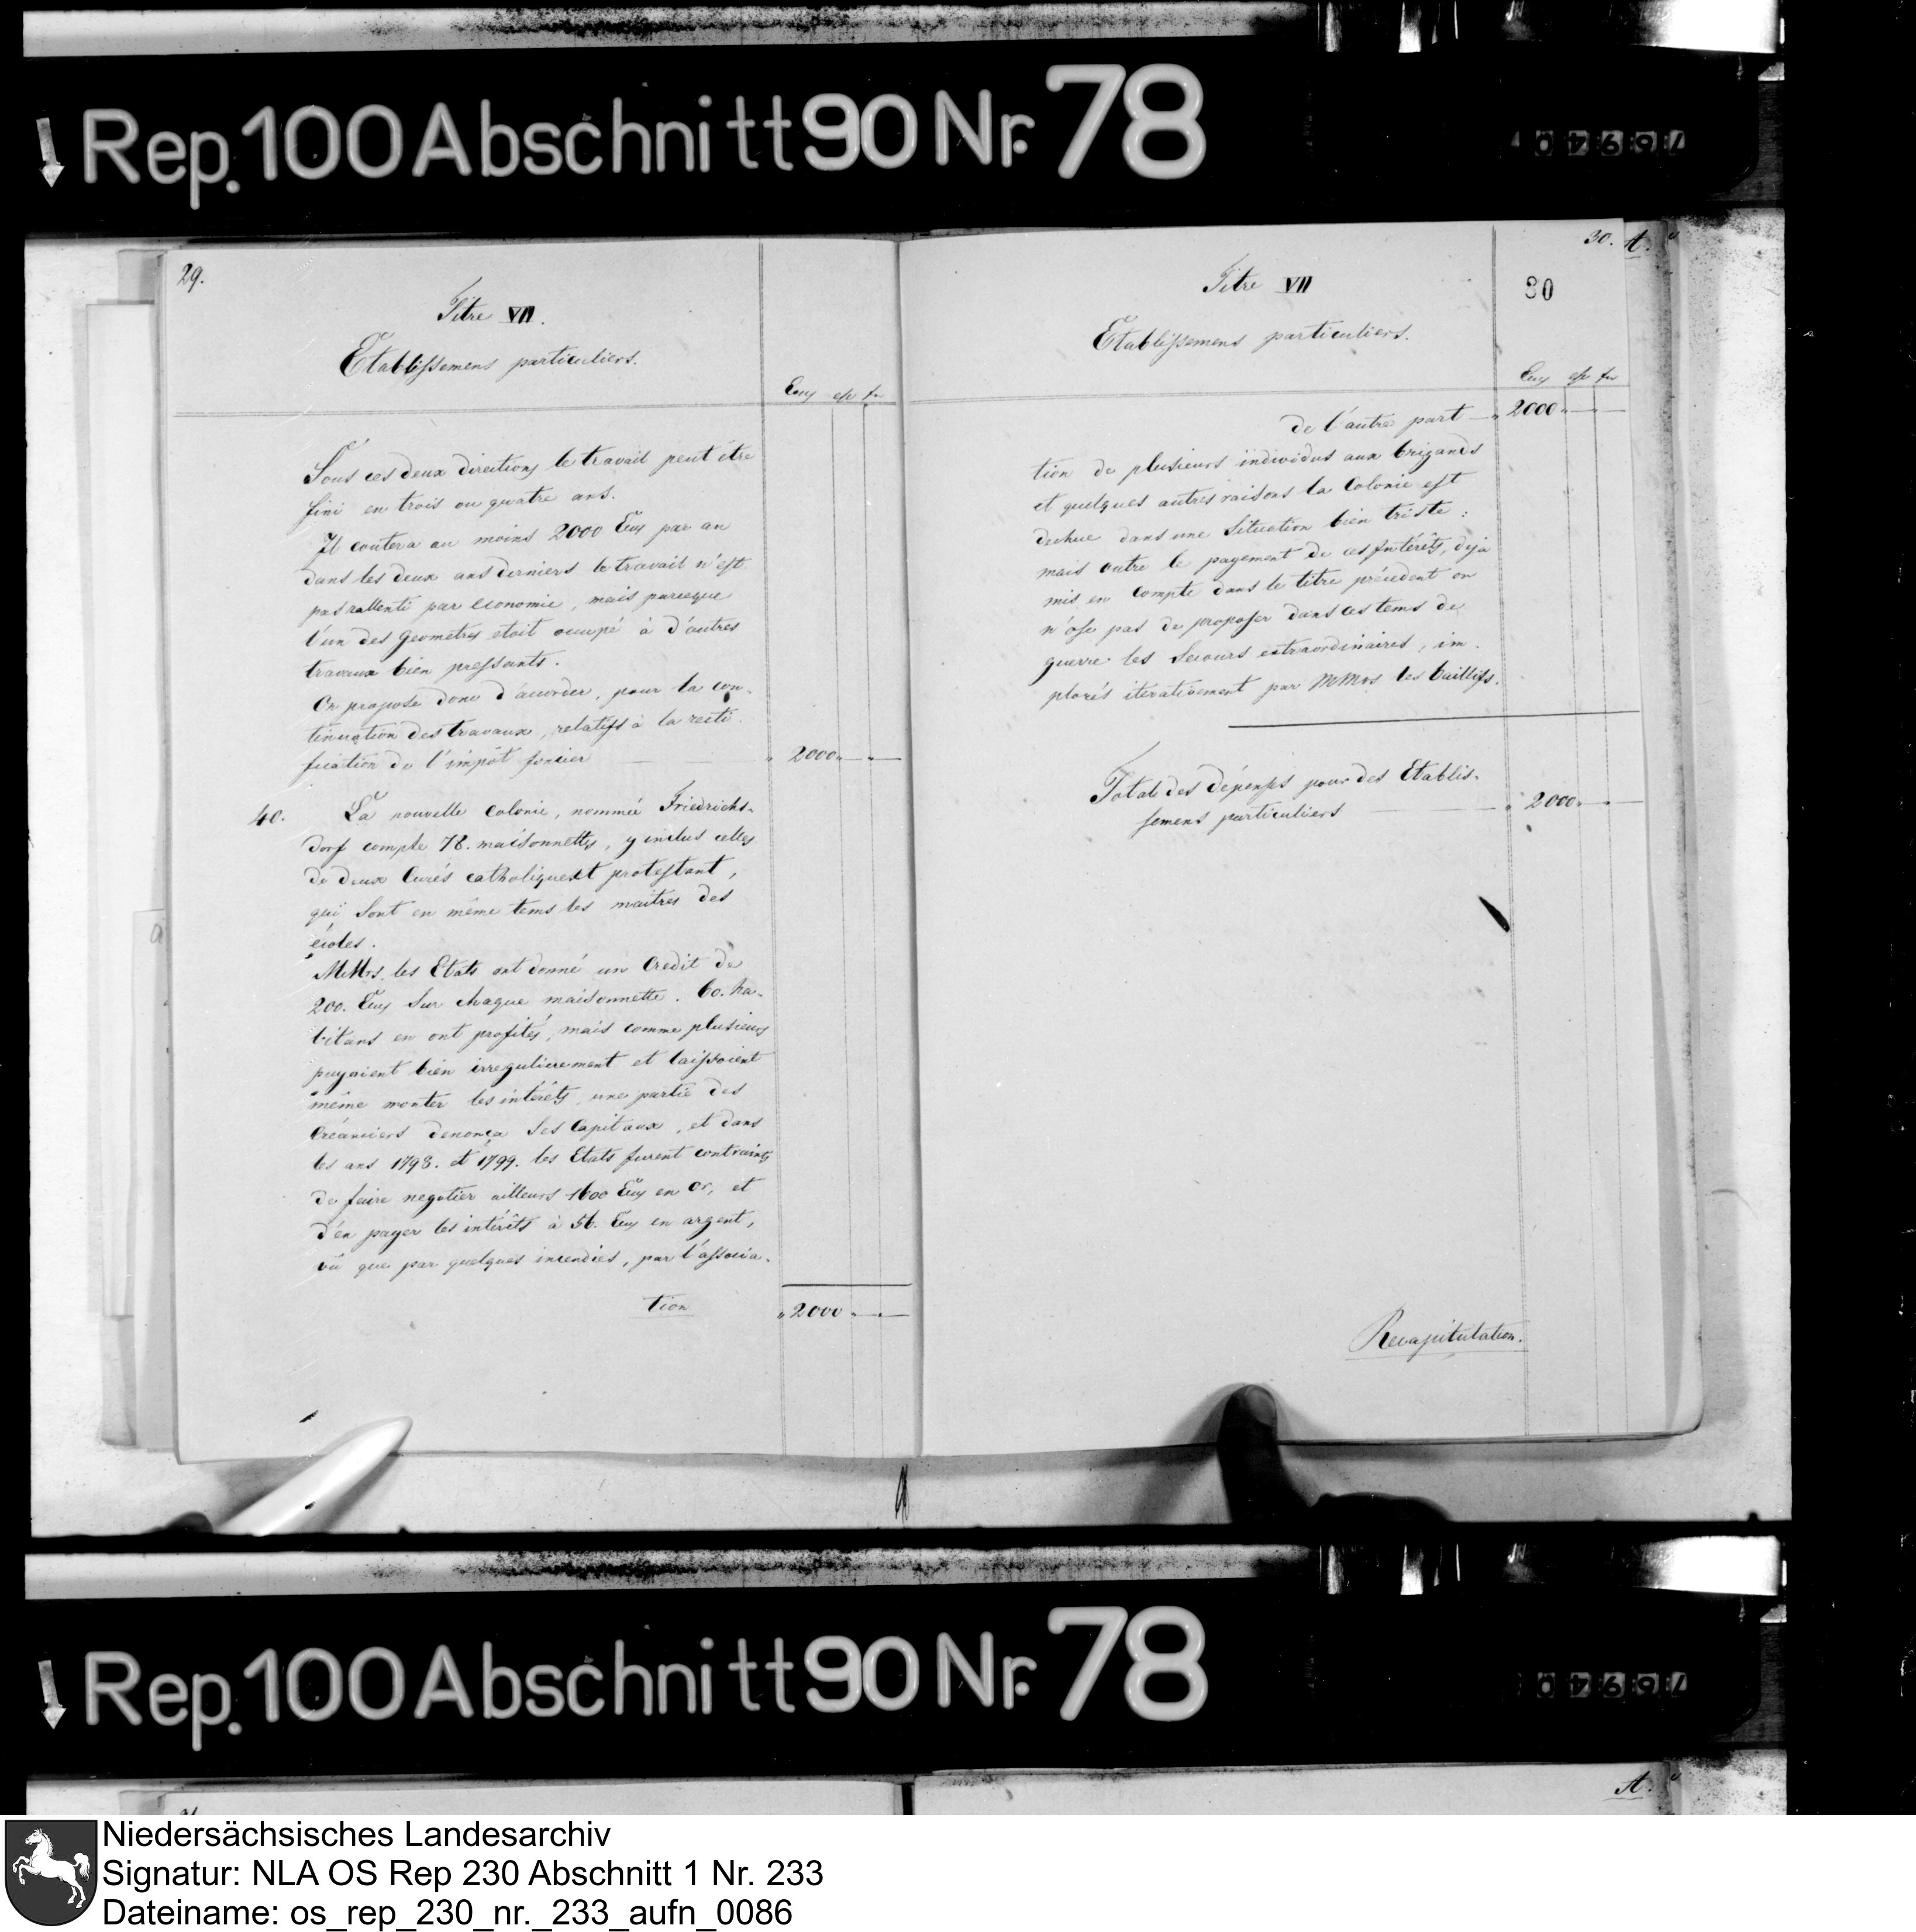 Rep. 100 Abschnitt 90 Nr. 78
29.
Titre VII.
Etablissemens particuliers.
Sous ces deux directions le travail peut être
fini en trois ou quatre ans.
Il coutera au moins 2000 par an
dans les deux ans derniers le travail n'est
pas rallenti par economie, mais parceque
l'un des Geometres etoit occupé à d'autres
travaux bien pressants.
On propose donc d'accorder, pour la con-
tinuation des travaux, relatifs à la recti-
fication de l'impôt foncier 2000
40. La nouvelle Colonie, nommée Friedrichs-
dorf compte 78. maisonnettes, y inclus celles
de deux Curés catholique et protestant,
qui sont en même tems les maitres des
écoles.
MMrs. les Etats ont donné un Credit de
200. sur chaque maisonnette. 60. ha-
bitans en ont profités, mais comme plusieurs
payaient bien irregulierement et laissoient
même monter les intérêts, une partie des
Créanciers denonça ses Capitaux, et dans
les ans 1798. et 1799. les Etats furent contraints
de faire negotier ailleurs 1600 en or, et
d'en payer les intérêts à 56. en argent,
vû que par quelques incendies, par l'associa-
tion 2000
30.
A.
30
Titre VII
Etablissemens particuliers.
de l'autre part 2000
tion de plusieurs individus aux brigands
et quelques autres raisons la Colonie est
dechue dans une situation bien triste:
mais outre le payement de ces Intérêts, deja
mis en compte dans le titre précedent on
n'ose pas de proposer dans ces tems de
guerre les secours extraordinaires, im-
plorés iterativement par MMrs les baillifs.
Total des dépenses pour des Etablis-
semens particuliers 2000
Recapitulation.
Rep. 100 Abschnitt 90 Nr. 78
A.
Niedersächsisches Landesarchiv
Signatur: NLA OS Rep 230 Abschnitt 1 Nr. 233
Dateiname: os_rep_230_nr._233_aufn_0086